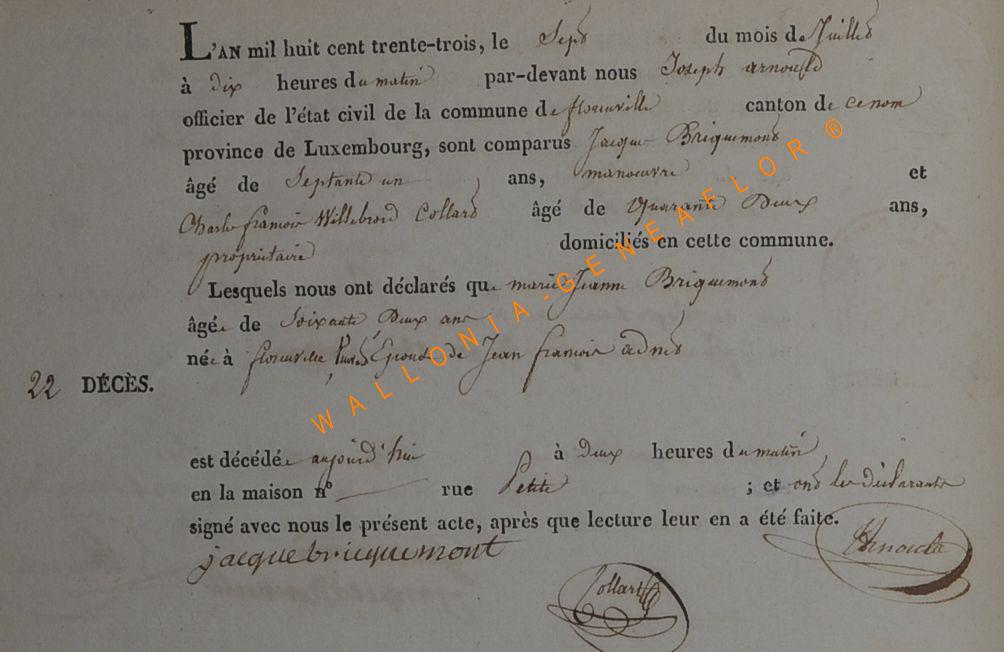 L'AN mil huit cent trente-trois, le Sept du mois de Juillet
à dix heures du matin par-devant nous Joseph arnould
officier de l'état civil de la commune de florenville canton de ce nom
province de Luxembourg, sont comparus Jacque Briquemont
âgé de Septante un ans, manoeuvre et
Charle francois Willebrord Collard âgé de Quarante Deux ans,
propriétaire domiciliés en cette commune.
Lesquels nous ont déclarés que marie Jeanne Briquemont
âgée de Soixante Deux ans
née à florenville Epouse de Jean francois adnet
22 DÉCÈS.
est décédée aujourd'hui à deux heures du matin
en la maison nº rue Petite ; et ont les déclarants
signé avec nous le présent acte, après que lecture leur en a été faite.
jacquebricquemont
Arnould
Collard
WALLONIA-GENEAFLOR ®